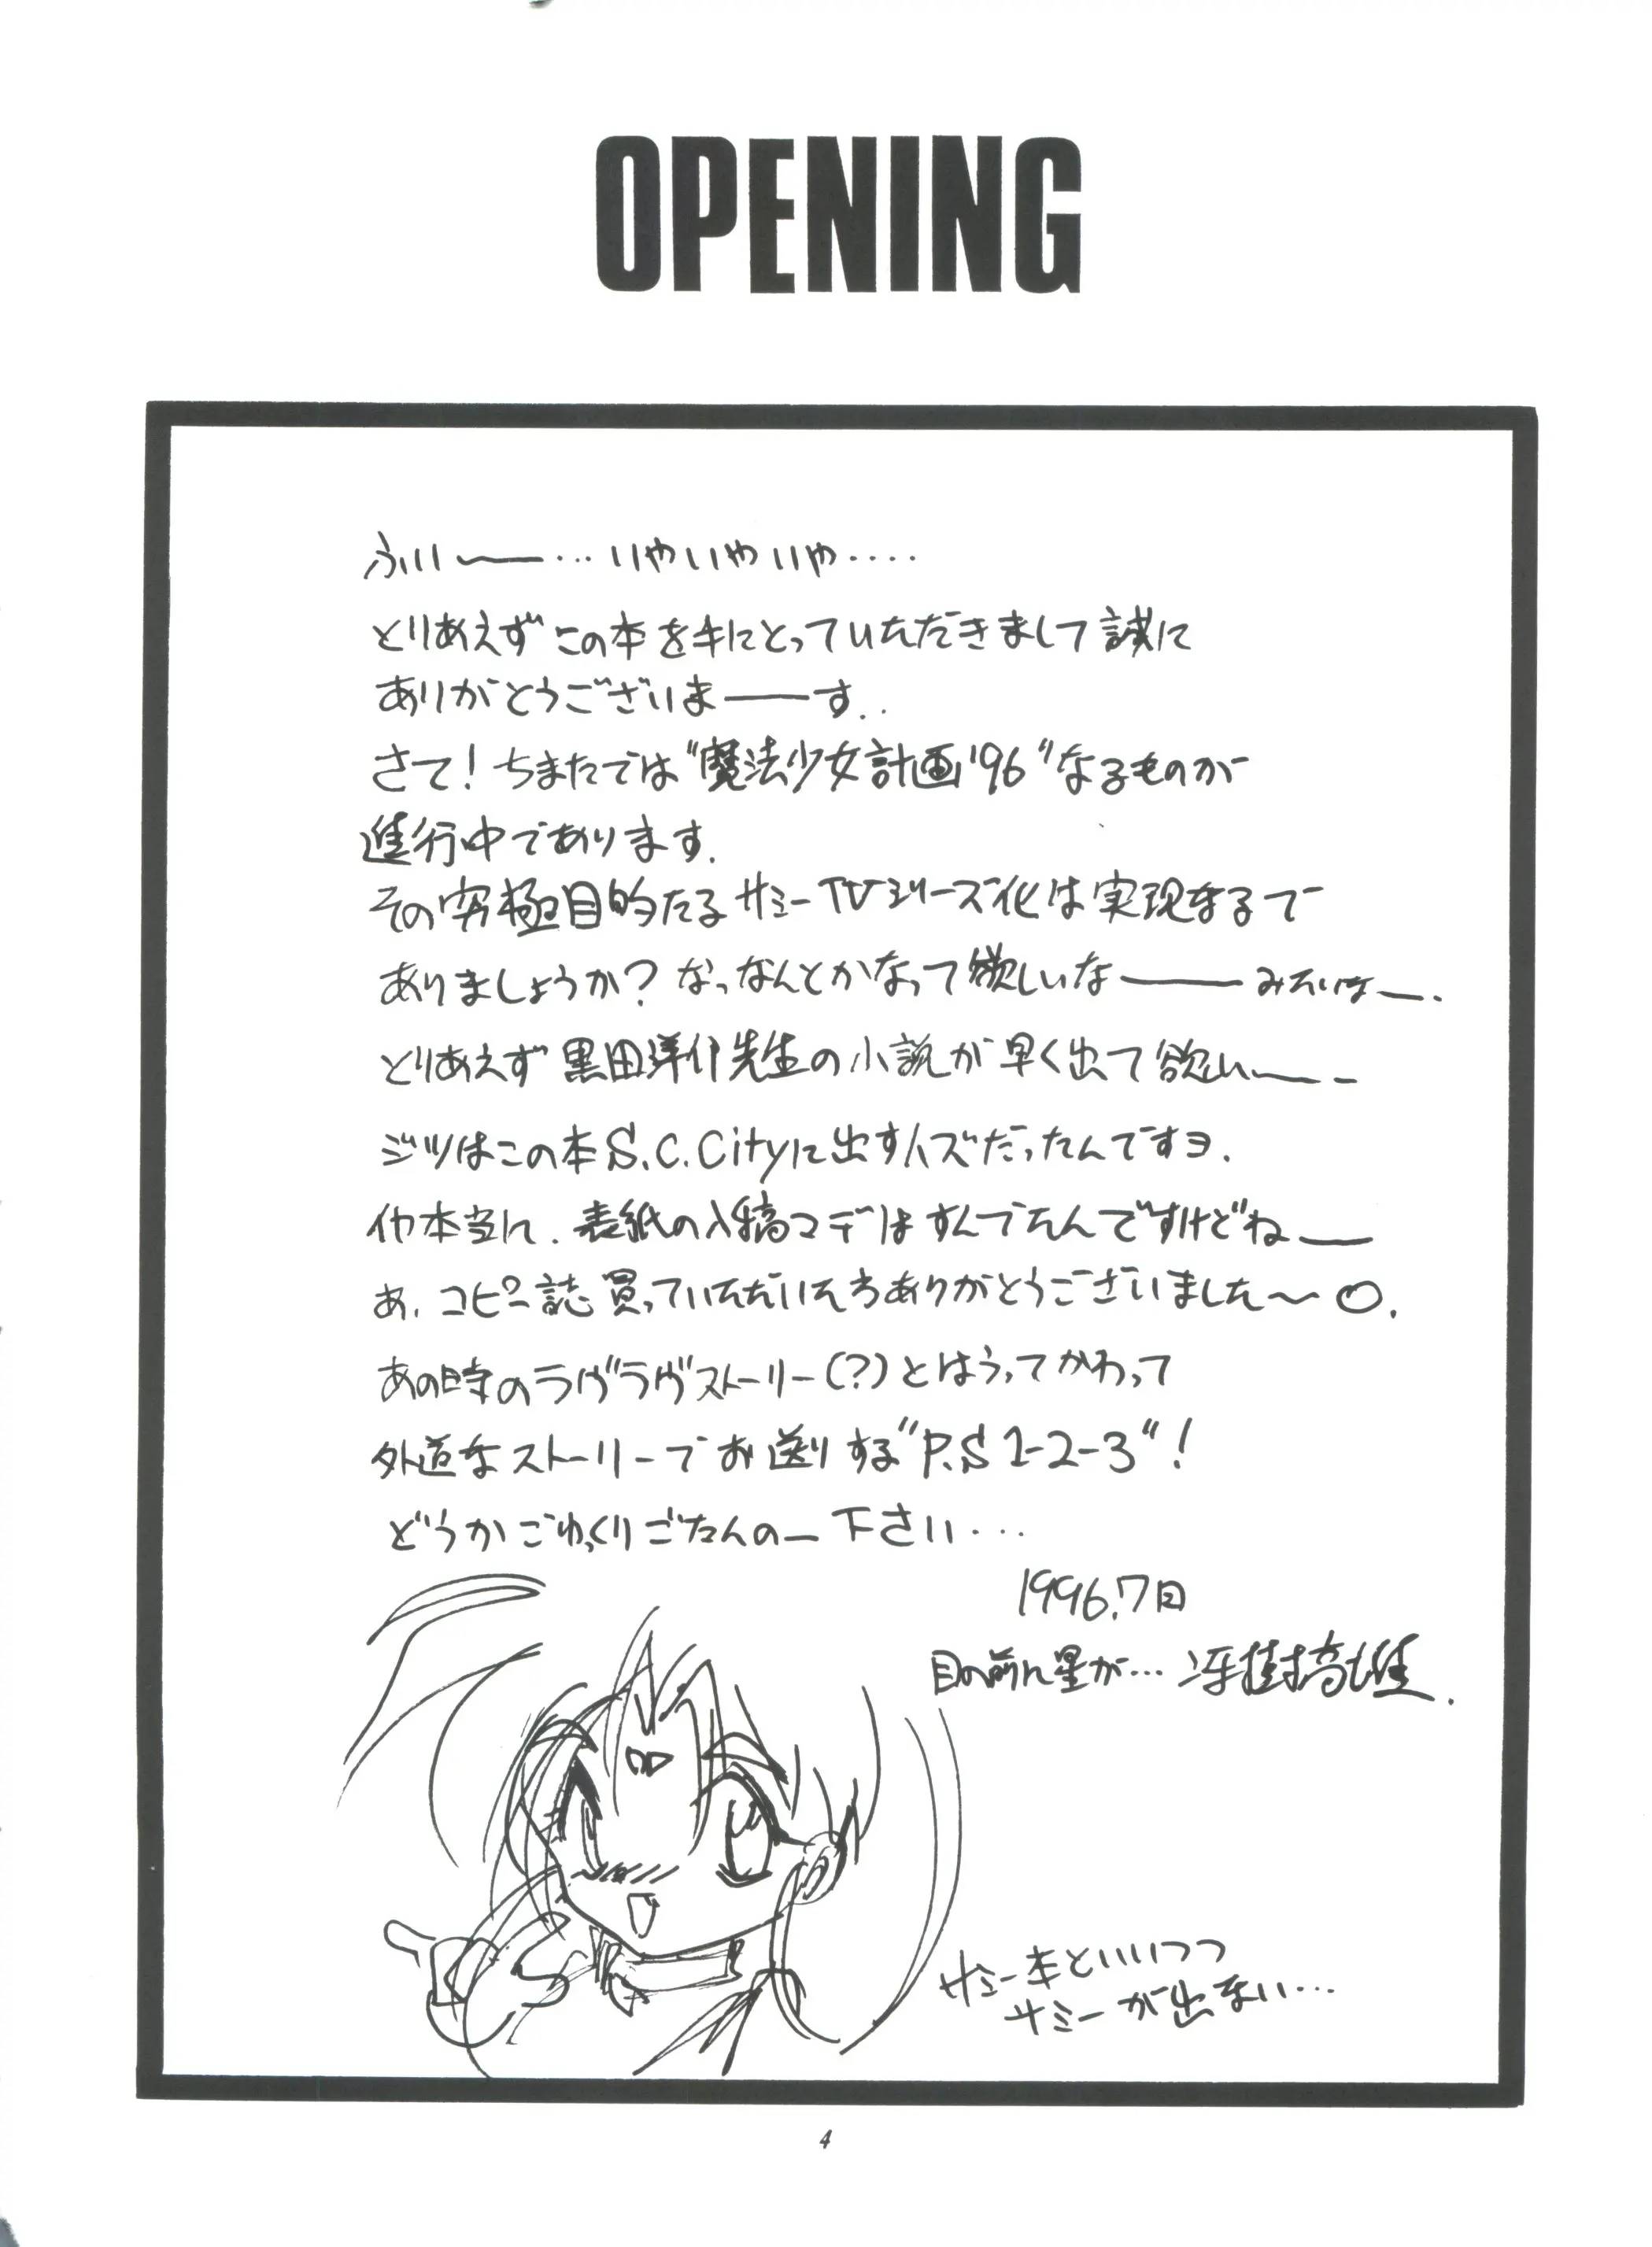 OPENING
ふいー…いやいやいや‥‥
とりあえずこの本を手にとっていただきまして誠に
ありがとうございまーーす..
さて！ちまたでは"魔法少女計画'96"なるものが
進行中であります.
その究極目的たるサミーTVシリーズ化は実現するで
ありましょうか？なっなんとかなって欲しいなーーみたいなー.
とりあえず黒田洋介先生の小説が早く出て欲しいー-
ジツはこの本S.C.Cityに出すハズだったんですヨ.
イヤ本当に.表紙の入稿マデはすんでたんですけどねー
あ.コピー誌買っていただいた方ありがとうございました〜○.
あの時のラヴラヴストーリー(?)とはうってかわって
外道なストーリーでお送りする"P.S 1-2-3"！
どうかごゆっくりごたんのー下さい…
1996.7月
目の前に星が…冴樹高雄.
サミー本といいつつ
サミーが出ない…
4